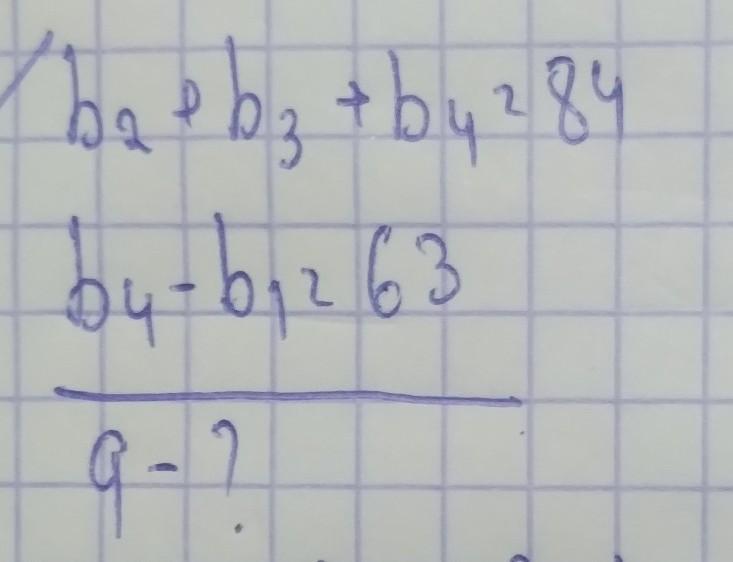 b₂ + b₃ + b₄ = 84
b₄ - b₁ = 63
q - ?